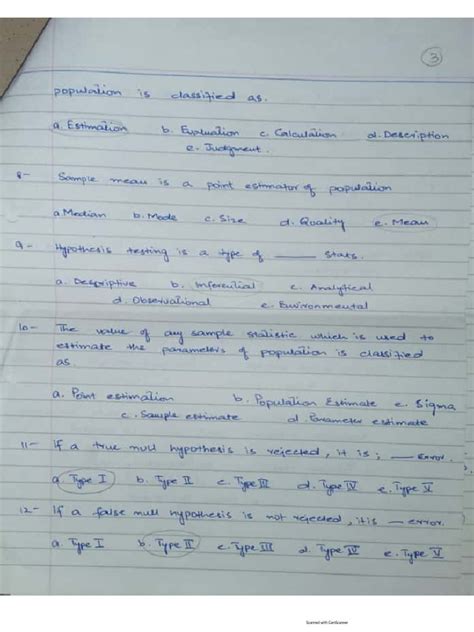 3
population is classified as.
a. Estimation b. Evaluation c. Calculation d. Description
e. Judgment.
8- Sample mean is a point estimator of population
a Median b. Mode c. Size d. Quality e. Mean
9- Hypothesis testing is a type of ______ stats.
a. Descriptive b. Inferential c. Analytical
d. Observational e. Environmental
10- The value of any sample statistic which is used to
estimate the parameters of population is classified
as.
a. Point estimation b. Population Estimate e. Sigma
c. Sample estimate d. Parameter estimate
11- If a true null hypothesis is rejected, it is; ___ error.
a. Type I b. Type II c. Type III d. Type IV e. Type V
12- If a false null hypothesis is not rejected, it is ___ error.
a. Type I b. Type II c. Type III d. Type IV e. Type V
Scanned with CamScanner